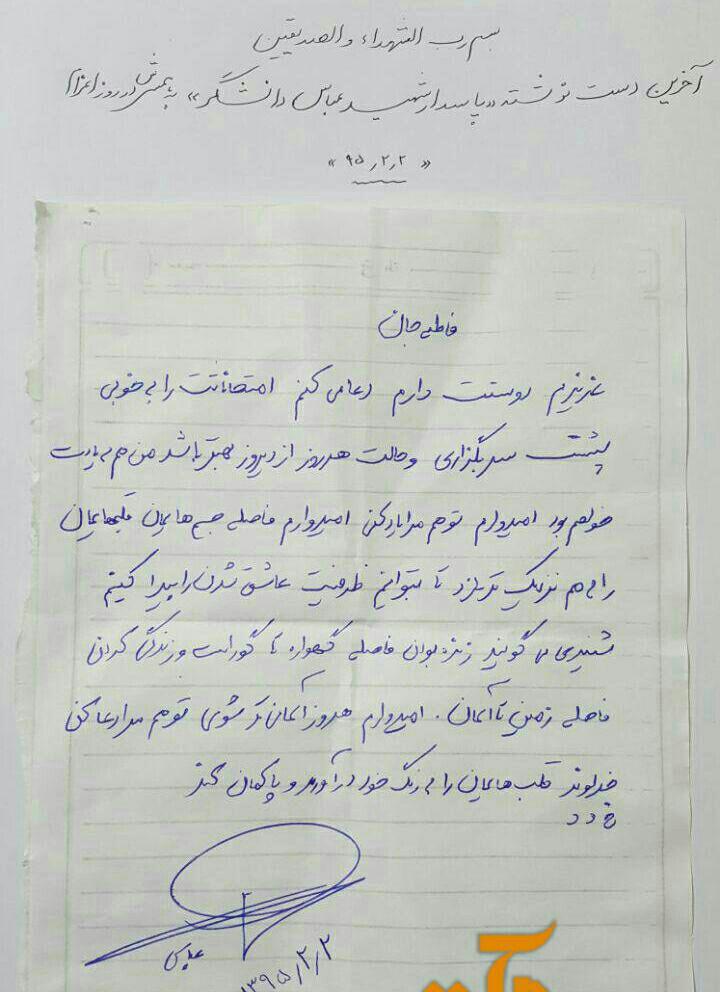 بسم رب الشهداء والصدیقین
آخرین دست نوشته «پاسدار شهید عباس دانشگر» به همسرش در روز اعزام
« ۹۵٫۲٫۲ »
فاطمه جان
عزیزم دوستت دارم دعا می کنم امتحاناتت را به خوبی
پشت سر بگذاری و حالت هر روز از دیروز بهتر باشد من هم به یادت
خواهم بود امیدوارم تو هم مرا یاد کنی امیدوارم فاصله جسم هایمان قلبهایمان
را به هم نزدیک تر سازد تا بتوانیم ظرفیت عاشق شدن را پیدا کنیم
شنیدی می گویند زنده بودن فاصله گهواره تا گور است و زندگی کردن
فاصله زمین تا آسمان. امیدوارم هر روز آسمانی تر شوی تو هم مرا دعا کن
خداوند قلب هایمان را به رنگ خود در آورد و پاکمان کند
عباس
۱۳۹۵٫۲٫۲